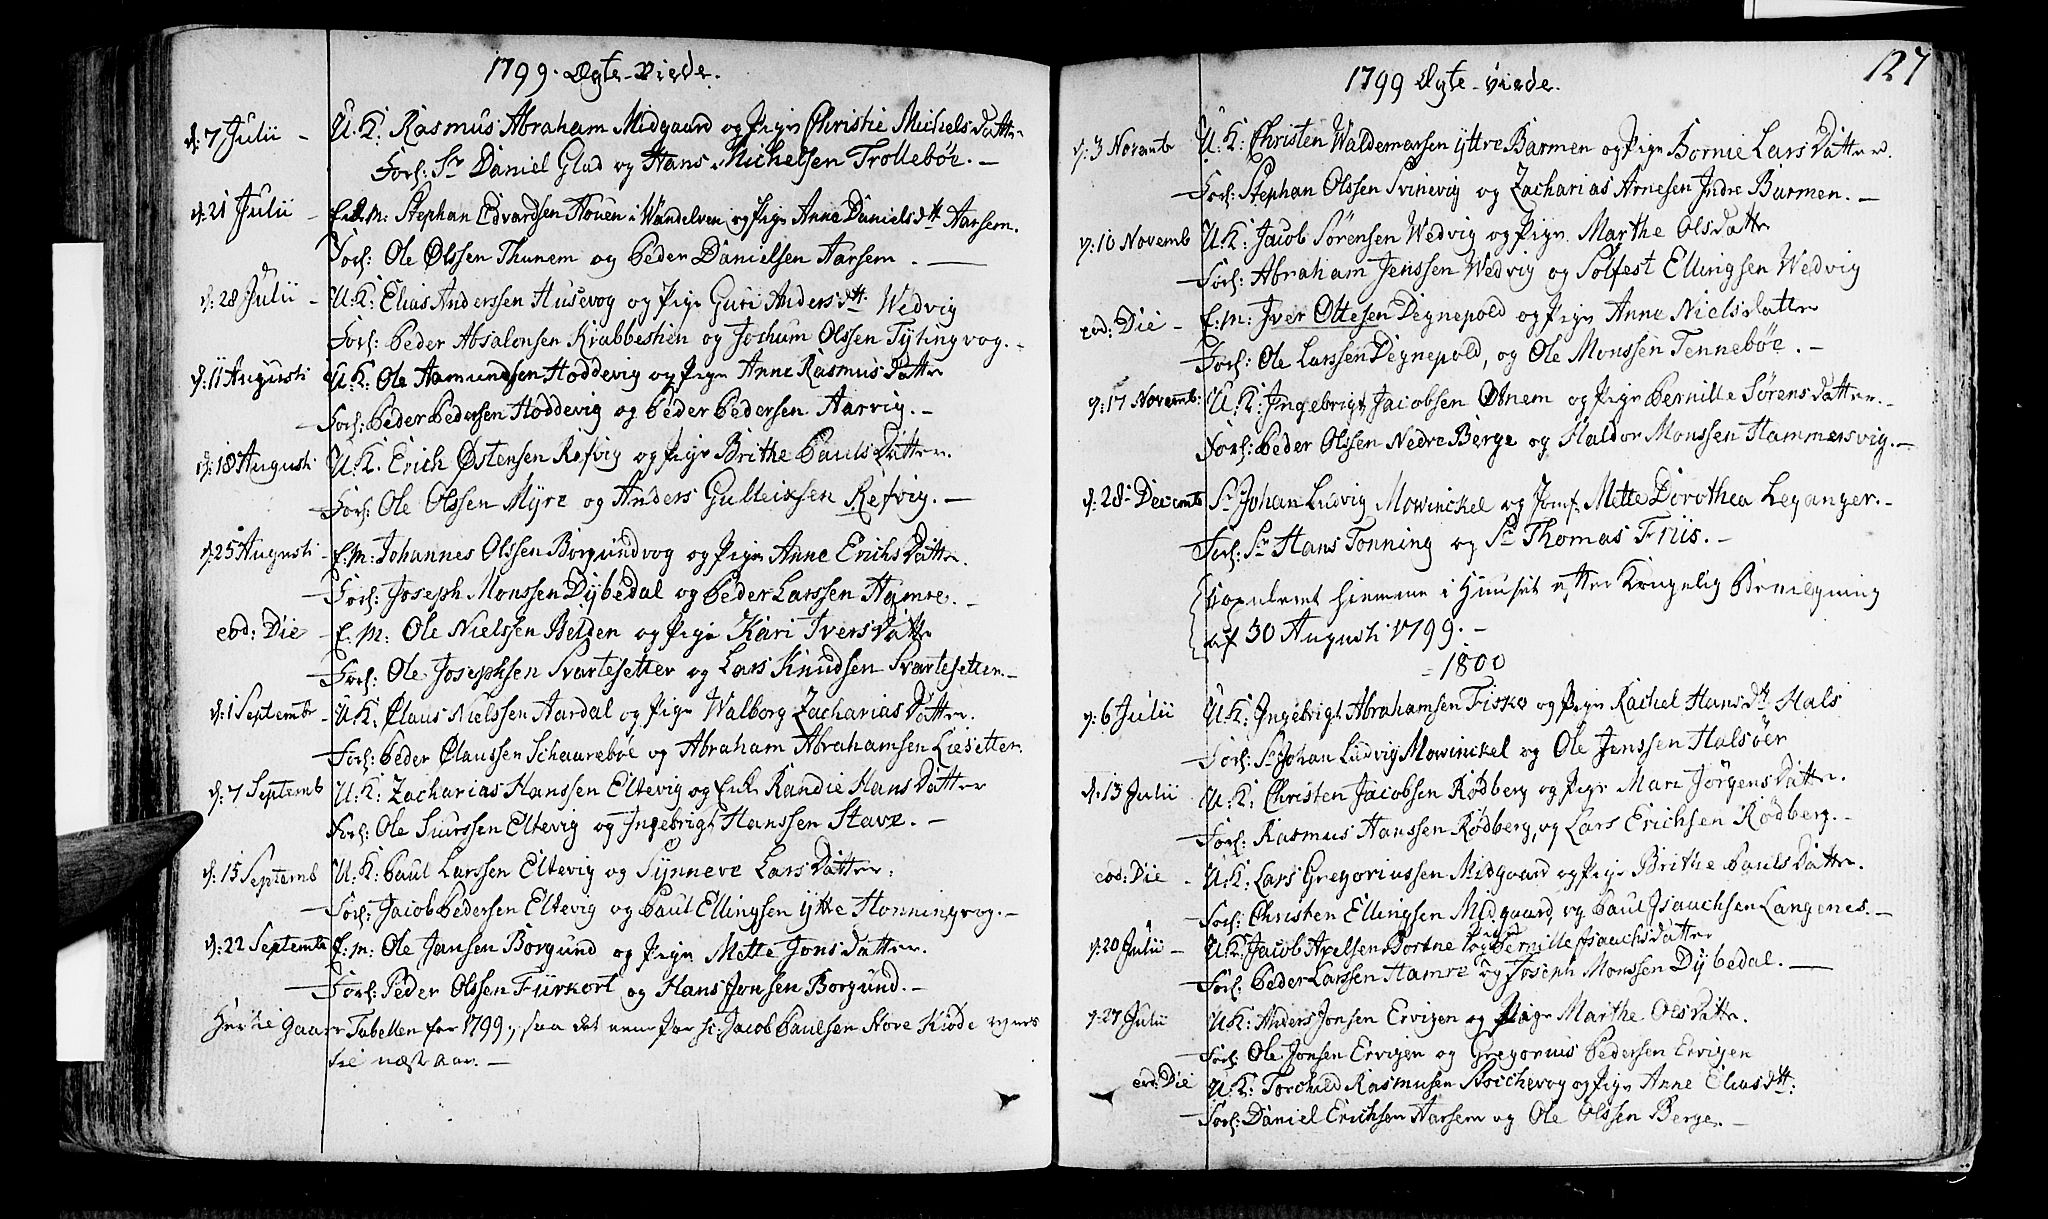 1799. Ægte-viede.
d: 7 Julii - U.K. Rasmus Abraham Midgaard og Pige Christie MichelsDatter
Forl: Sr Daniel Glad og Hans Michelsen Trollebøe. -
d: 21 Julii - Enkem: Stephan Edvardsen Houen i Wandelven og Pige Anne Danielsdtt Aarsem.
Forl: Ole Olssen Thunem og Peder Danielsen Aarsem. -
d: 28 Julii - U.K: Elias Anderssen Husevog og Pige Guri Andersdtt: Wedvig
Forl: Peder Absalonsen Krabbestien og Jochum Olssen Tytingvog. -
d: 11 Augusti U.K: Ole Aamundsen Hoddevig og Pige Anne RasmusDatter
- Forl: Peder Pedersen Hoddevig og Peder Pedersen Aarvig. -
d: 18 Augusti U.K. Erich Østensen Refvig og Pige Brithe PaulsDatter.
Forl: Ole Olssen Myre og Anders Gulleixsen Refvig. -
d: 25 Augusti - E.M: Johannes Olssen Borgundvog og Pige Anne ErichsDatter.
Forl: Joseph Monssen Dybedal og Peder Larssen Hamre. -
eod: Die - E.M: Ole Nielssen Belden og Pige Kari IversDatter
Forl: Ole Josephsen Svartesetter og Lars Knudsen Svartesetter. -
d: 1 Septembr - U.K: Claus Nielssen Aardal og Pige Walborg ZachariasDatter.
Forl: Peder Claussen Schaarebøe og Abraham Abrahamsen Liesetter.
d: 7 Septemb U.K: Zacharias Hanssen Eltevig og Enke Randie HansDatter
Forl: Ole Siurssen Eltevig og Ingebrigt Hanssen Stave. -
d: 15 Septemb U.K: Paul Larssen Eltevig og Synneve LarsDatter.
- Forl: Jacob Pedersen Eltevig og Paul Ellingsen ytre Honningvog. -
d: 22 Septembr E.M: Ole Jansen Borgund og Pige Mette JonsDatter.
Forl: Peder Olssen Furkort og Hans Jonsen Borgund. -
Hertil gaaer Tabellen for 1799, saa det eene Par sc: Jacob Paulsen Hove Kiøde regnes
til næste aar. -
127
1799 Ægte-viede.
d: 3 Novembr U.K: Christen Waldemarsen ytre Barmen og Pige Bornie LarsDatter.
- Forl: Stephan Olssen Svinevig og Zacharias Arnesen Indre Barmen. -
d: 10 Novemb U.K: Jacob Sørensen Wedvig og Pige Marthe OlsDatter
- Forl: Abraham Jenssen Wedvig og Solfest Ellingsen Wedvig
eod: Die - E.M: Iver Ottesen Degnepold og Pige Anne NielsDatter
- Forl: Ole Larssen Degnepold, og Ole Monssen Tennebøe. -
d: 17 Novemb: U.K: Ingebrigt Jacobsen Otnem og Pige Pernille SørensDatter. -
Forl: Peder Olssen Nedre Berge og Haldor Monssen Hammersvig. -
d: 28 Decemb Sr Johan Ludvig Mowinckel og Jomf: Mette Dorothea Leganger. -
- Forl: Sr Hans Tonning og Sr Thomas Friis. -
Copuleret hiemme i Huuset efter Kongelig Bevilgning
af 30 Augusti 1799. -
- 1800
d: 6 Julii U.K: Ingebrigt Abrahamsen Fiskø og Pige Rachel Hansdtt Hals
- Forl: Sr Johan Ludvig Mowinckel og Ole Jenssen Halsøer
d: 13 Julii U.K: Christen Jacobsen Rødberg og Pige Mari JørgensDatter.
- Forl: Rasmus Hanssen Rødberg, og Lars Erichsen Rødberg. -
eod: Die - U.K: Lars Gregoriussen Midgaard og Pige Brithe PaulsDatter.
- Forl: Christen Ellingsen Midgaard og Paul Isaachsen Langenes. -
d: 20 Julii - U.K: Jacob Axelsen Bortne og Pige Pernille Isaachsdatter
Forl. Peder Larssen Hamre og Joseph Monssen Dybedal. -
d: 27 Julii U.K: Anders Jonsen Ervigen og Pige Marthe OlsDatter.
- Forl: Ole Jonsen Ervigen og Gregorius Pedersen Ervigen
eod: Die U.K: Torchild Rasmusen Boichevog og Pige Anne Eliasdtt:
- Forl: Daniel Erichsen Aarsem og Ole Olssen Berge. -